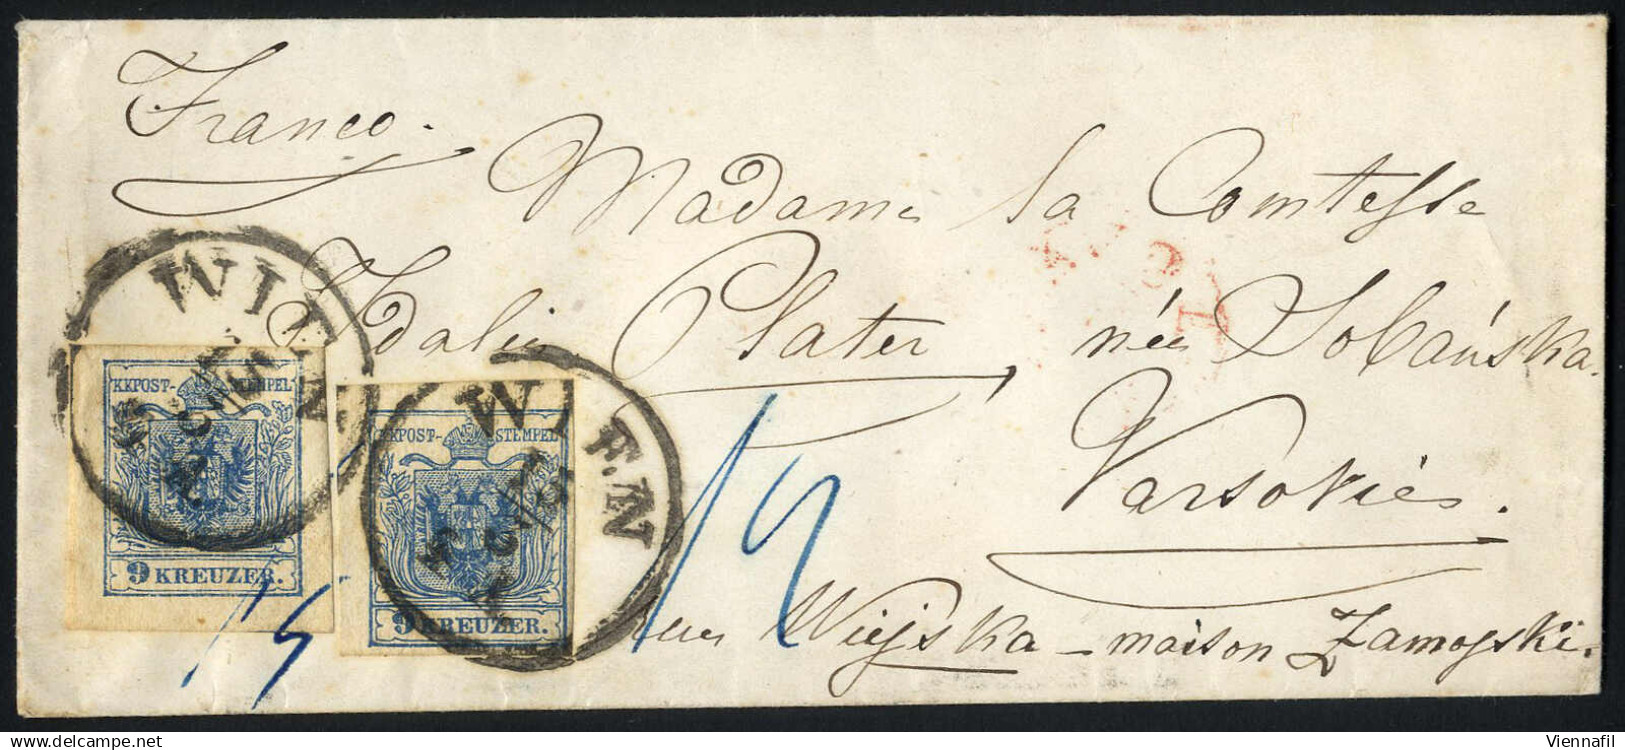 Franco.
Madame la Comtesse
Idalie Plater née Sobańska.
Varsovie.
rue Wiejska – maison Zamoyski.
WIEN
WIEN
KKPOST-STEMPEL
9 KREUZER.
KKPOST-STEMPEL
9 KREUZER.
Viennafil